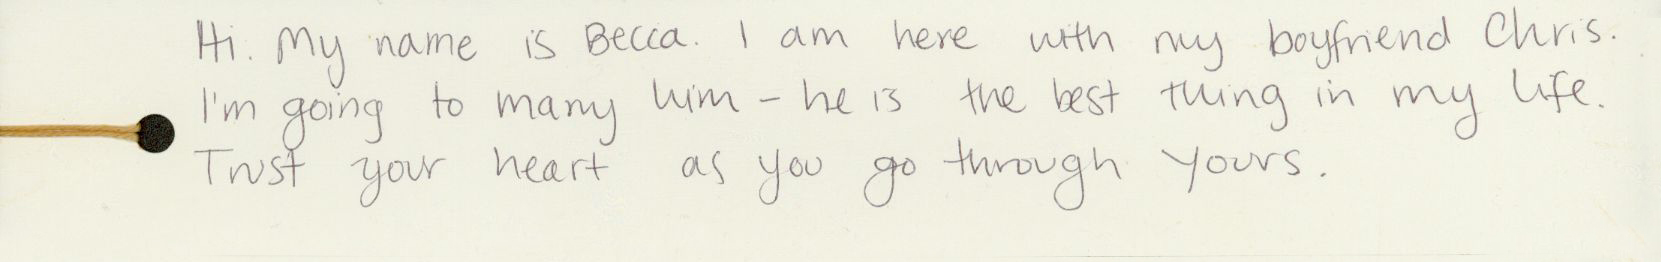 Hi. My name is Becca. I am here with my boyfriend Chris.
I'm going to marry him - he is the best thing in my life.
Trust your heart as you go through yours.